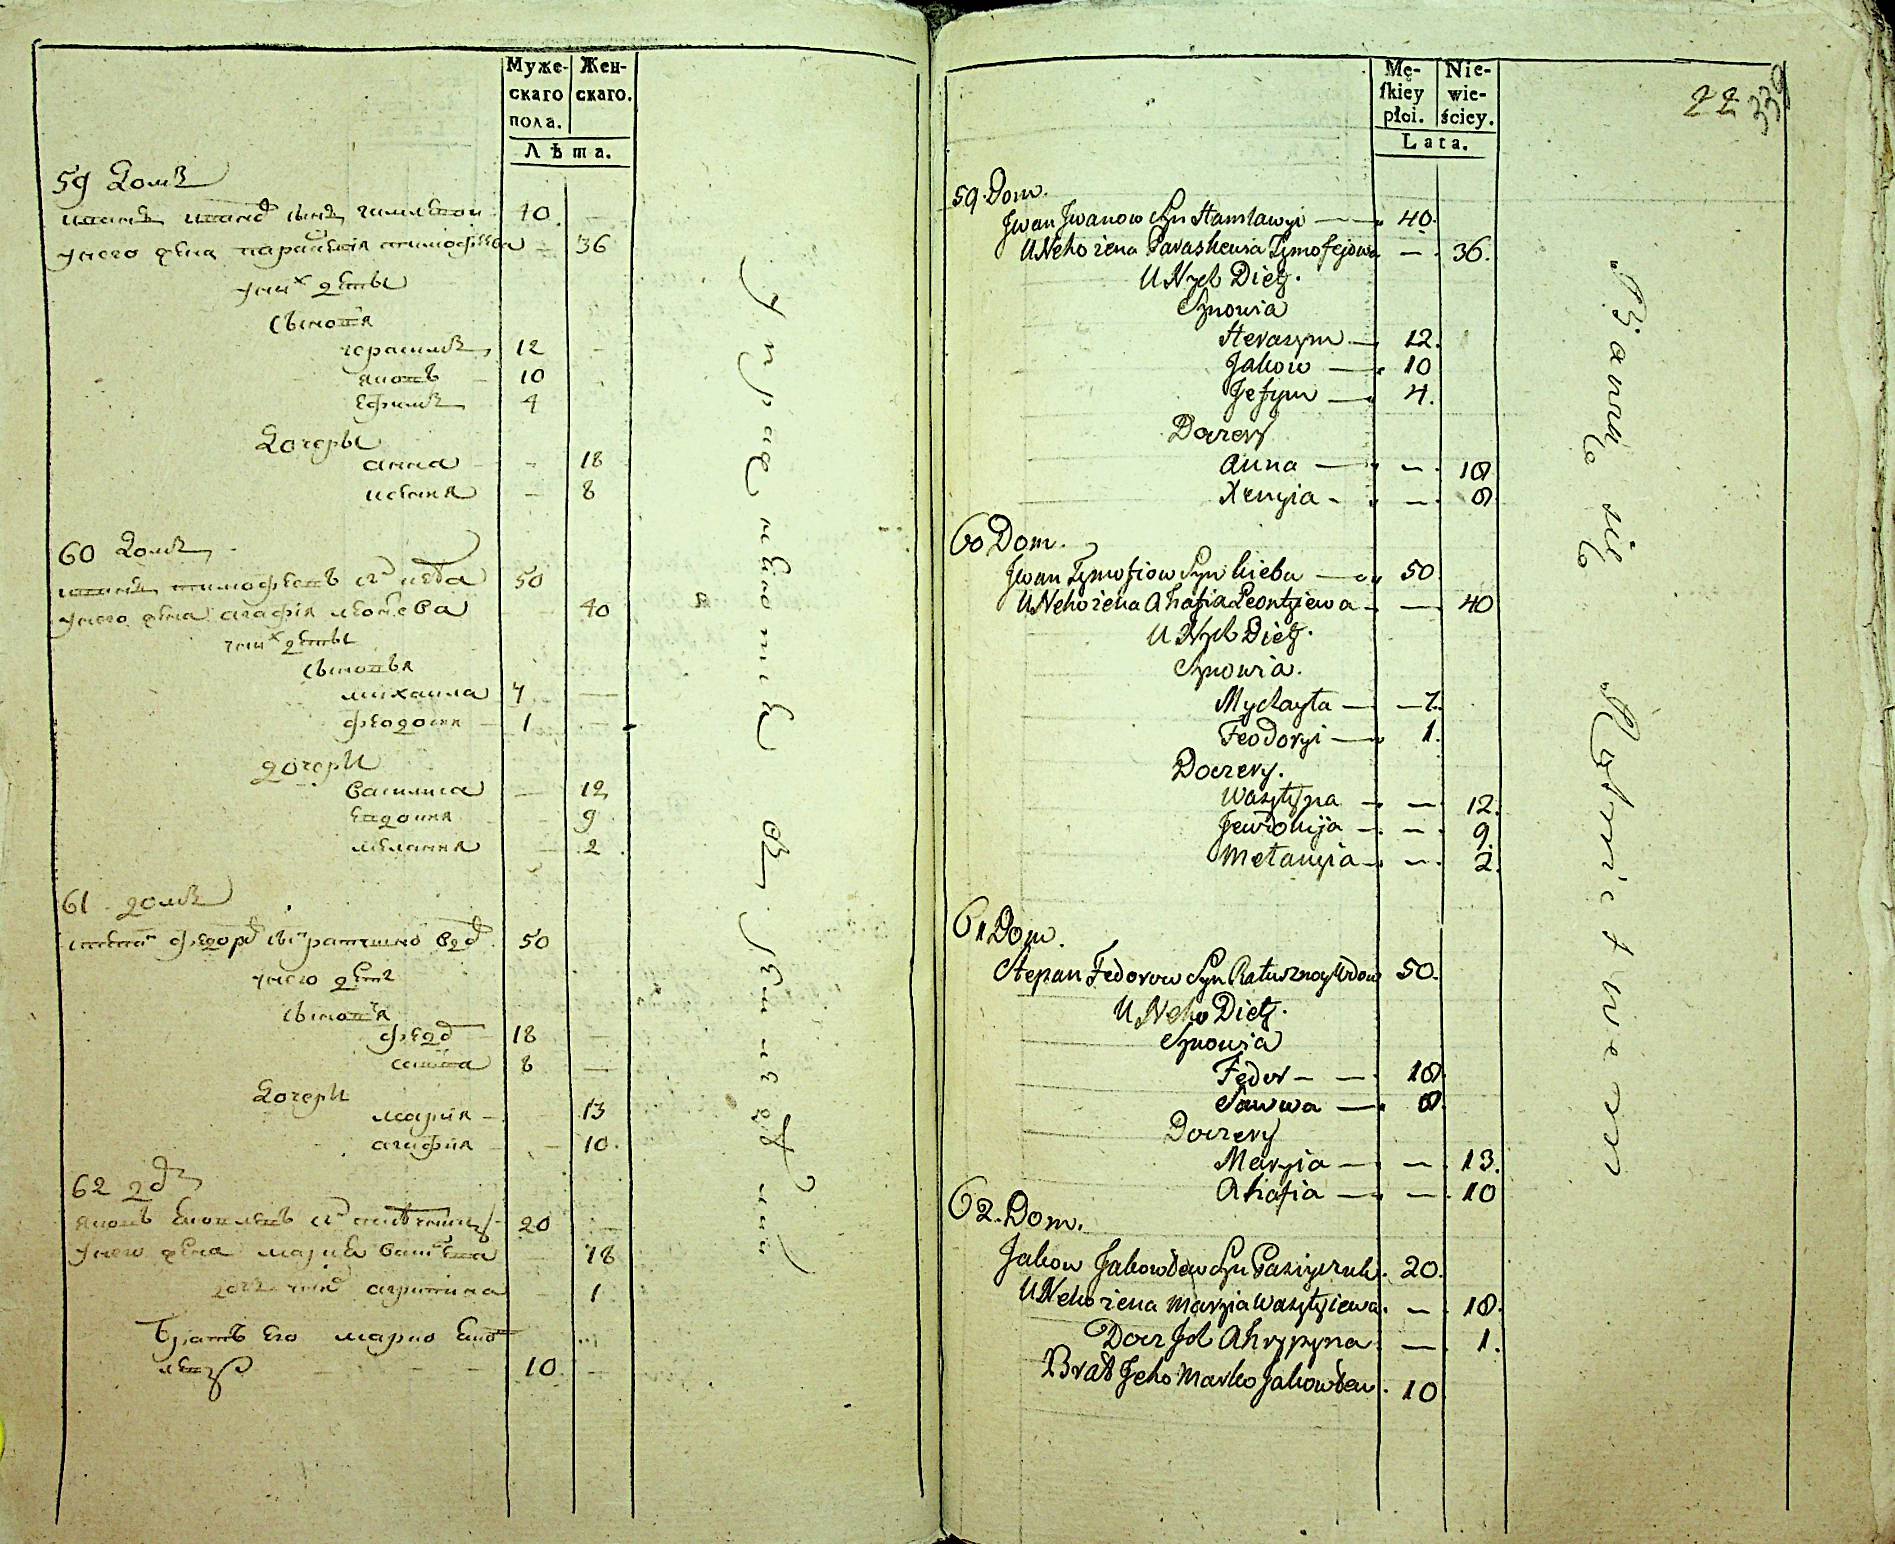 Муже-
скаго
пола.
Жен-
скаго.
Лѣта.
59 домъ
иванъ иванов сынъ 40
у него жена параскевія тимофѣева 36
у них дѣты
сыновя
герасимъ 12
яковъ 10
ефимъ 4
дочеры
анна 18
ксения 8
60 домъ
иванъ тимофеевъ сн 50
у него жена агафія 40
у них дѣты
сыновья
михаила 7
феодосия 1
дочери
василиса 12
евдокия 9
мелания 2
61 домъ
степан федоров 50
у него дѣти
сыновя
федор 18
савва 8
дочери
мария 13
агафия 10
62 д
яковъ яковлевъ сн 20
у него жена мария 18
агрипина 1
братъ его марко
10
упражняются
Mę-
skiey
płci.
Nie-
wie-
ściey.
Lata.
22
339
59. Dom.
Jwan Jwanow Syn 40.
U Neho żena Paraskewia Tymofejowa — 36.
U Nych Diety.
Synowia
Herasym — 12.
Jakow — 10
Jefym — 4.
Doczery
Anna — 18
Xenyia — 8
60 Dom.
Jwan Tymofiow Syn kieba — 50
U Neho żena Ahafia Leontyiewa — 40
U Nych Diety.
Synowia.
Mychayła — 7.
Feodozyi — 1.
Doczery.
Wasylisna — 12.
Jewdokija — 9.
Mełanyia — 2.
61 Dom.
Stepan Fedorow Syn Ratusznoy Wdow 50.
U Neho Diety.
Synowia
Fedor — 18
Sawwa — 8.
Doczery
Maryia — 13.
Ahafia — 10
62. Dom.
Jakow Jakowlew Syn 20.
U Neho żena Maryia Wasylyiewa — 18.
Docz Jch Ahrypyna — 1.
Brat Jeho Marko Jakowlew. 10
Bawią się Rolnictwem